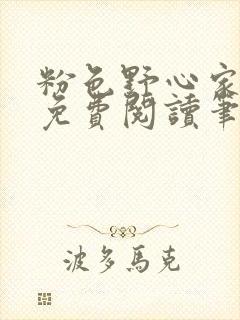 粉色野心家
免費閱讀筆
波多馬克